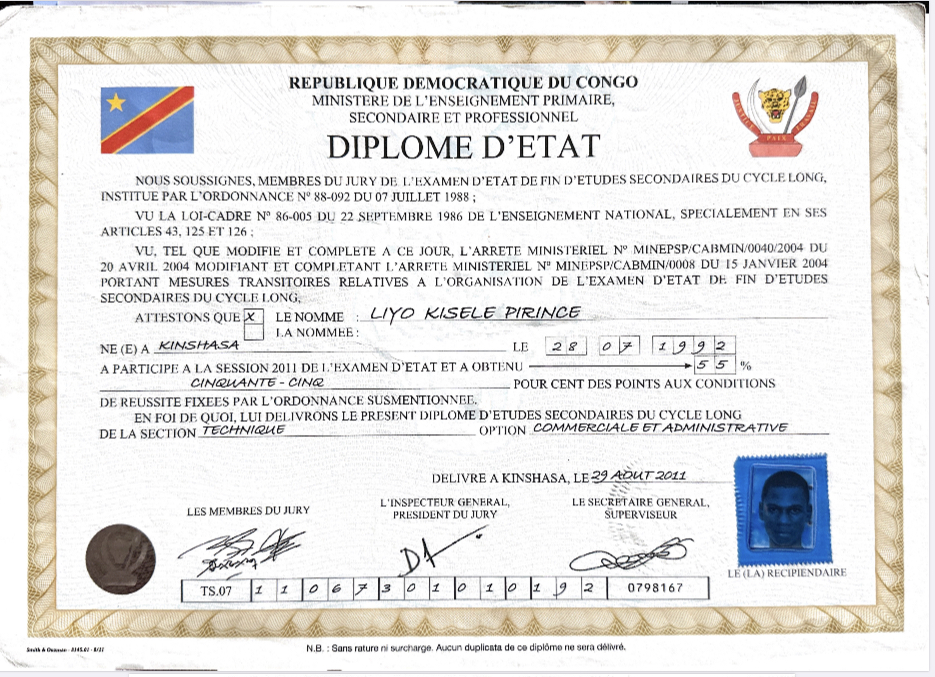 REPUBLIQUE DEMOCRATIQUE DU CONGO
MINISTERE DE L'ENSEIGNEMENT PRIMAIRE,
SECONDAIRE ET PROFESSIONNEL
DIPLOME D'ETAT
JUSTICE PAIX TRAVAIL
NOUS SOUSSIGNES, MEMBRES DU JURY DE L'EXAMEN D'ETAT DE FIN D'ETUDES SECONDAIRES DU CYCLE LONG,
INSTITUE PAR L'ORDONNANCE N° 88-092 DU 07 JUILLET 1988 ;
VU LA LOI-CADRE N° 86-005 DU 22 SEPTEMBRE 1986 DE L'ENSEIGNEMENT NATIONAL, SPECIALEMENT EN SES
ARTICLES 43, 125 ET 126 ;
VU, TEL QUE MODIFIE ET COMPLETE A CE JOUR, L'ARRETE MINISTERIEL N° MINEPSP/CABMIN/0040/2004 DU
20 AVRIL 2004 MODIFIANT ET COMPLETANT L'ARRETE MINISTERIEL N° MINEPSP/CABMIN/0008 DU 15 JANVIER 2004
PORTANT MESURES TRANSITOIRES RELATIVES A L'ORGANISATION DE L'EXAMEN D'ETAT DE FIN D'ETUDES
SECONDAIRES DU CYCLE LONG,
ATTESTONS QUE X LE NOMME : LIYO KISELE PIRINCE
LA NOMMEE :
NE (E) A KINSHASA LE 28 07 1992
A PARTICIPE A LA SESSION 2011 DE L'EXAMEN D'ETAT ET A OBTENU 55 %
CINQUANTE - CINQ POUR CENT DES POINTS AUX CONDITIONS
DE REUSSITE FIXEES PAR L'ORDONNANCE SUSMENTIONNEE.
EN FOI DE QUOI, LUI DELIVRONS LE PRESENT DIPLOME D'ETUDES SECONDAIRES DU CYCLE LONG
DE LA SECTION TECHNIQUE OPTION COMMERCIALE ET ADMINISTRATIVE
DELIVRE A KINSHASA, LE 29 AOUT 2011
LES MEMBRES DU JURY
L'INSPECTEUR GENERAL,
PRESIDENT DU JURY
LE SECRETAIRE GENERAL,
SUPERVISEUR
LE (LA) RECIPIENDAIRE
TS.07 1 1 0 6 7 3 0 1 0 1 0 1 9 2 0798167
N.B. : Sans rature ni surcharge. Aucun duplicata de ce diplôme ne sera délivré.